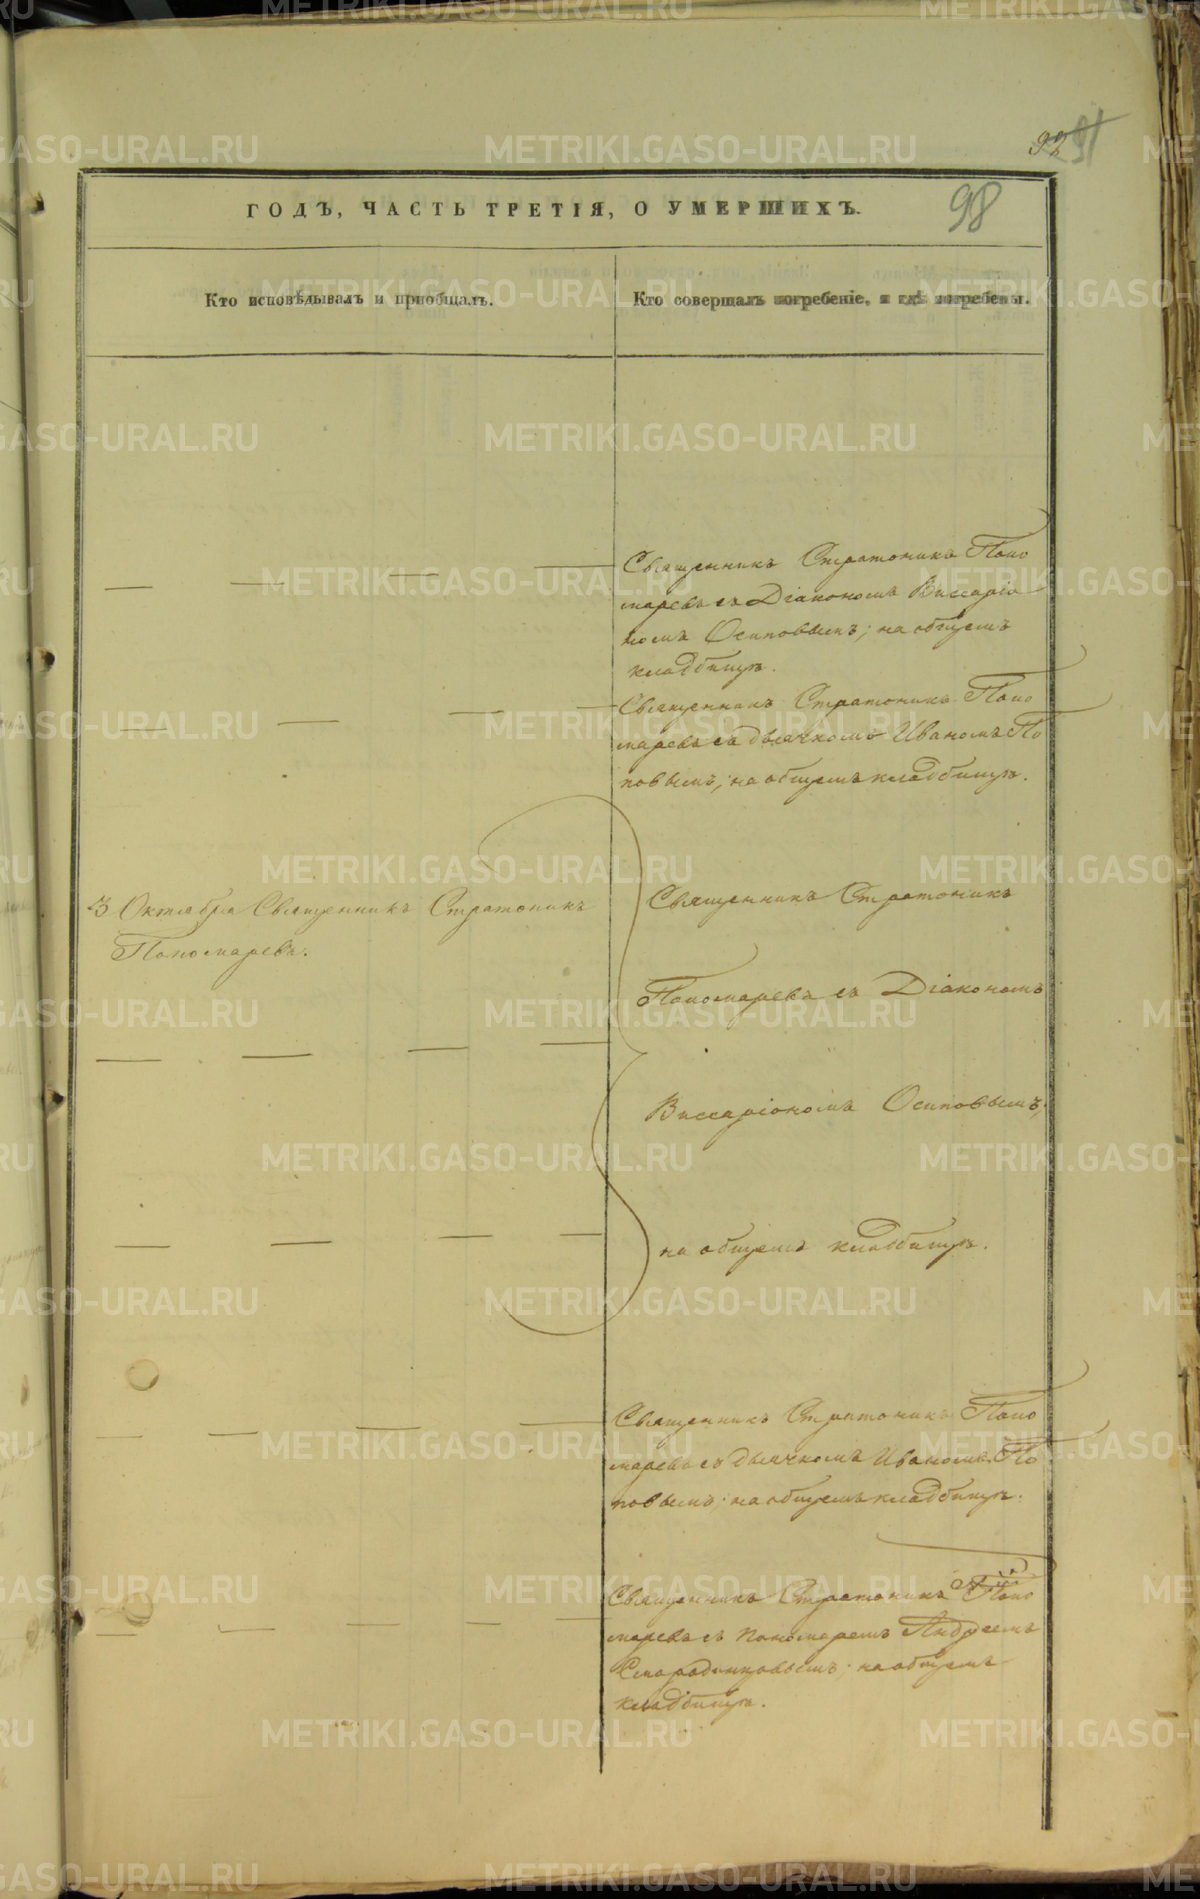 92 91
98
ГОДЪ, ЧАСТЬ ТРЕТІЯ, О УМЕРШИХЪ.
Кто исповѣдывалъ и пріобщалъ.
Кто совершалъ погребеніе, и гдѣ погребены.
Священникъ Стратоникъ Поно
маревъ съ Діакономъ Виссаріо
номъ Осиповымъ; на общемъ
кладбищѣ.
Священникъ Стратоникъ Поно
маревъ съ дьячкомъ Иваномъ По
повымъ; на общемъ кладбищѣ.
3 Октября Священникъ Стратоникъ
Пономаревъ.
Священникъ Стратоникъ
Пономаревъ съ Діакономъ
Виссаріономъ Осиповымъ,
на общемъ кладбищѣ.
Священникъ Стратоникъ Поно
маревъ съ дьячкомъ Иваномъ По
повымъ; на общемъ кладбищѣ.
Священникъ Стратоникъ Поно
маревъ съ пономаремъ Андреемъ
Смородинцовымъ; на общемъ
кладбищѣ.
METRIKI.GASO-URAL.RU